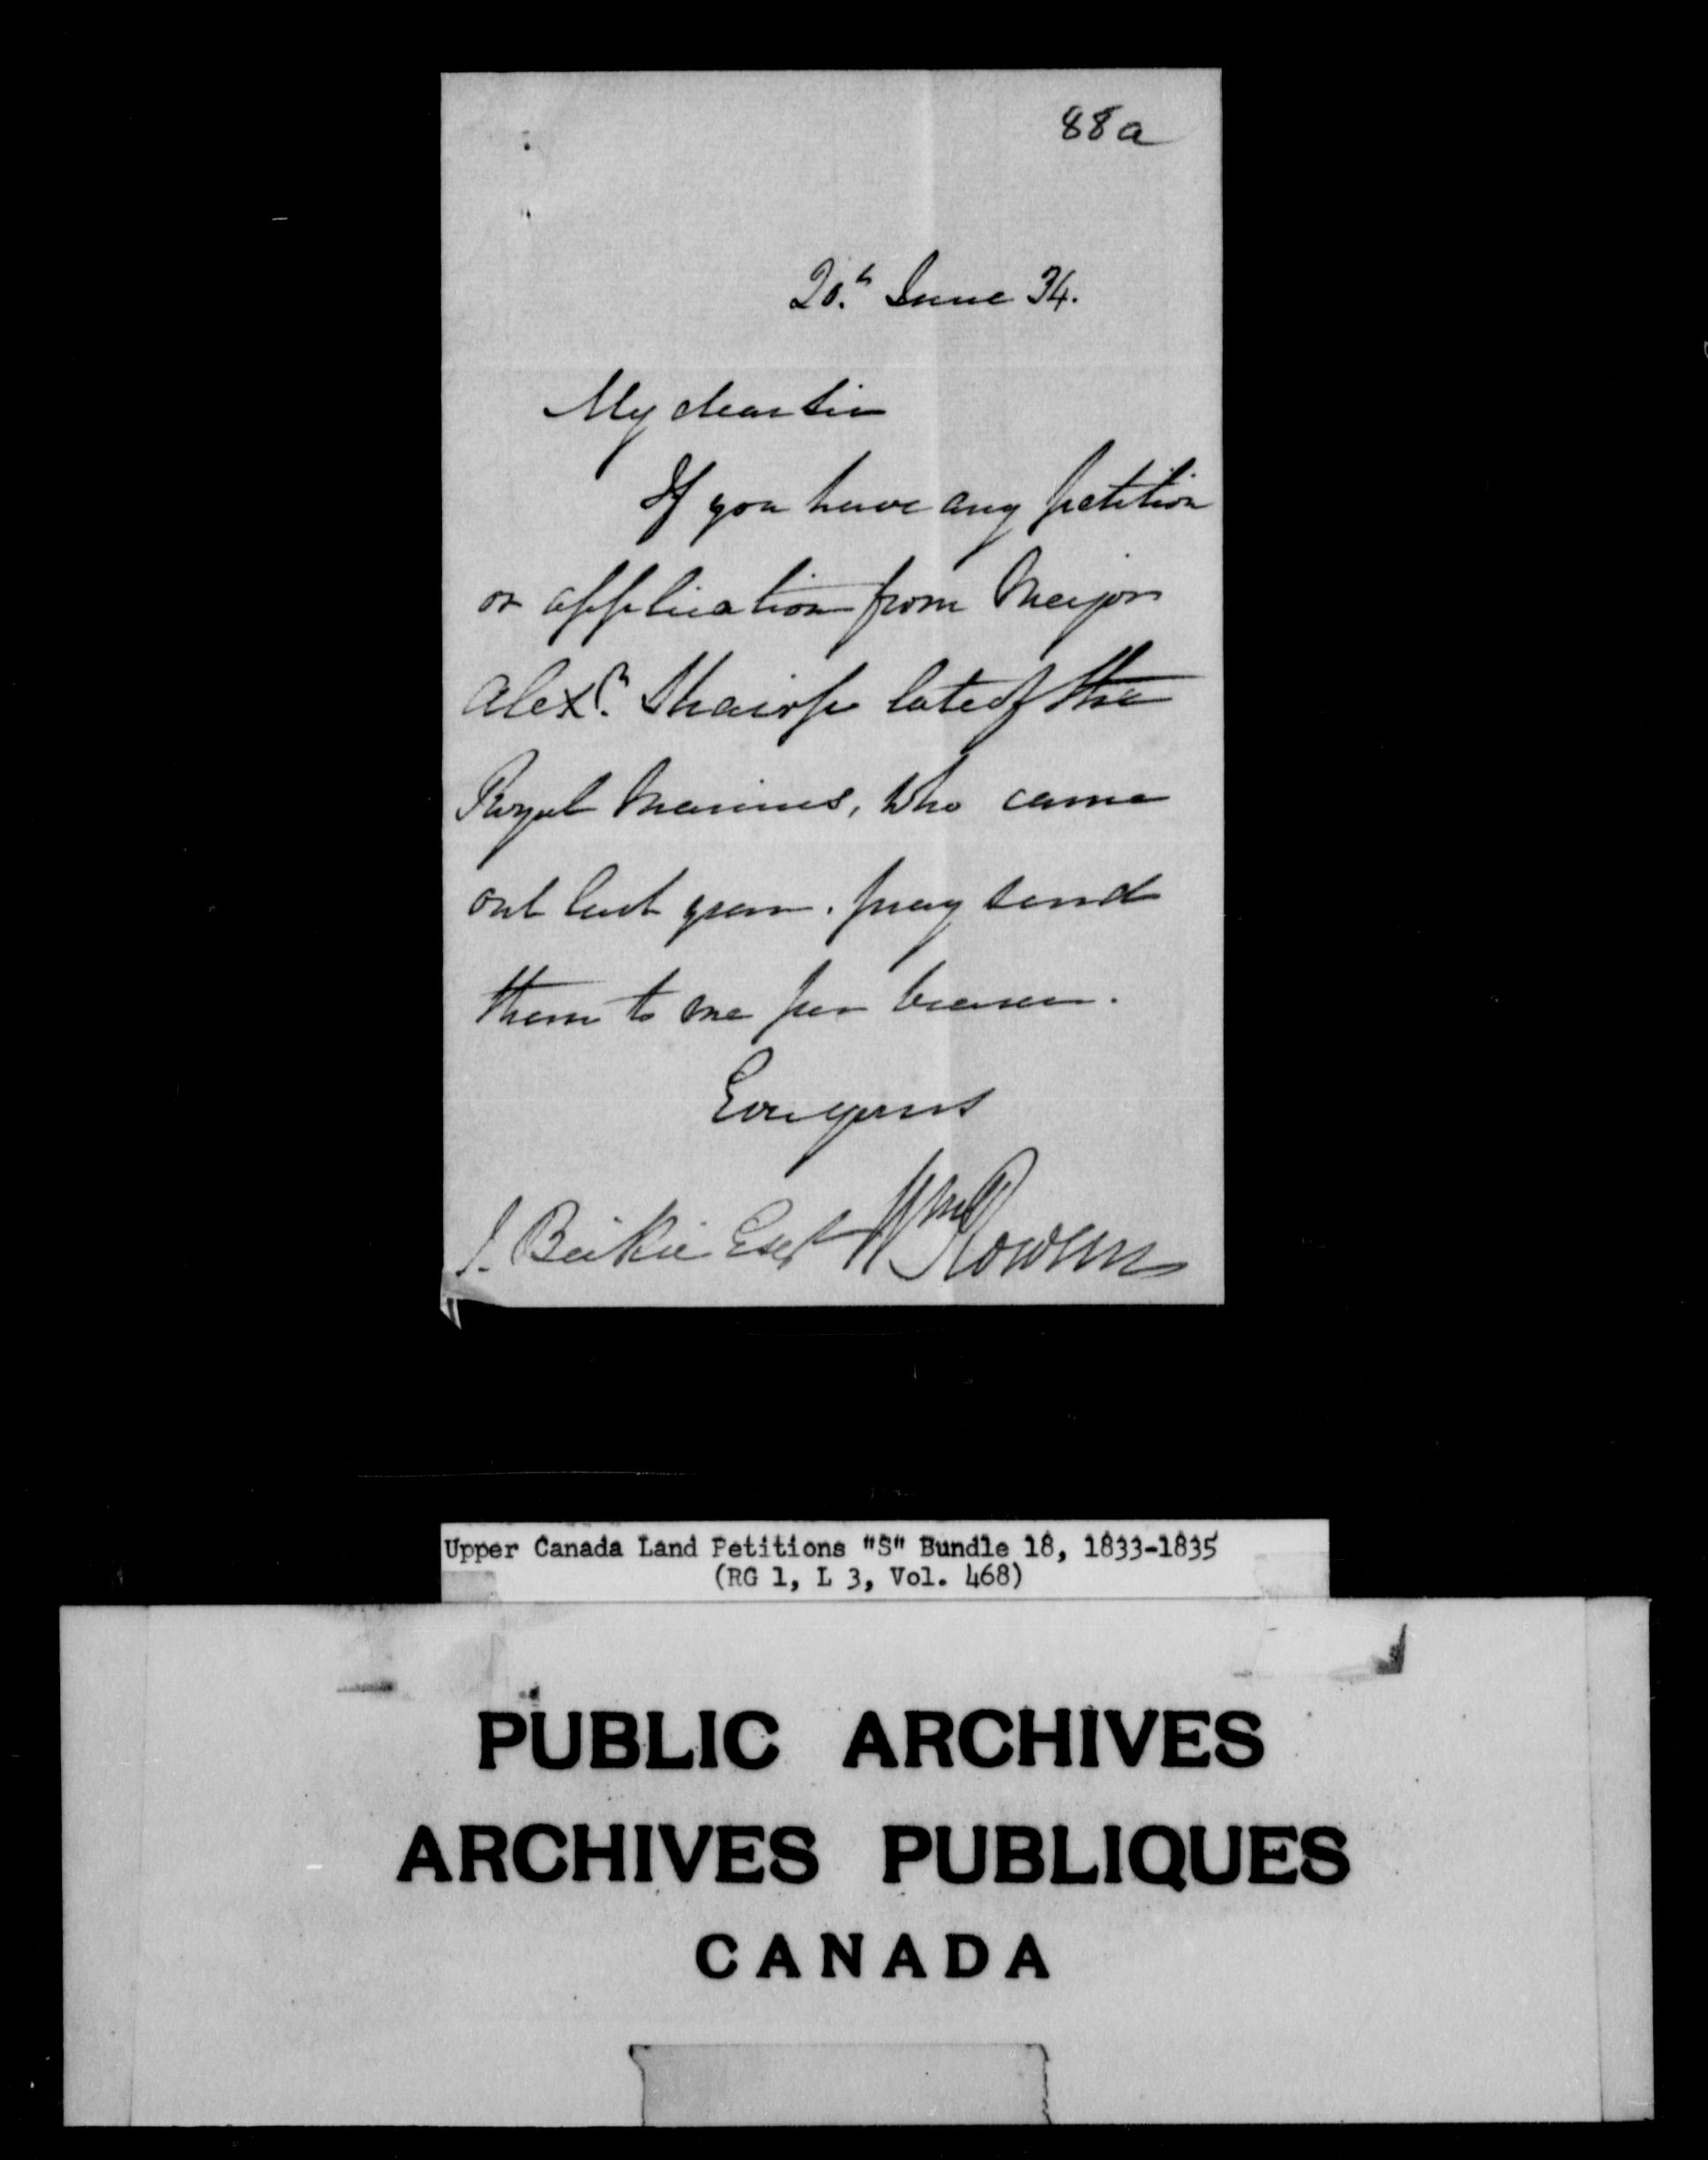 88a
20.th June 34.
My dear Sir
If you have any petition
or application from Major
Alexr. Shairp late of the
Royal Marines, who came
out last year. pray send
them to me per bearer.
Ever yours
Wm Rowan
J. Beikie Esqr
Upper Canada Land Petitions "S" Bundle 18, 1833-1835
(RG 1, L 3, Vol. 468)
PUBLIC ARCHIVES
ARCHIVES PUBLIQUES
CANADA